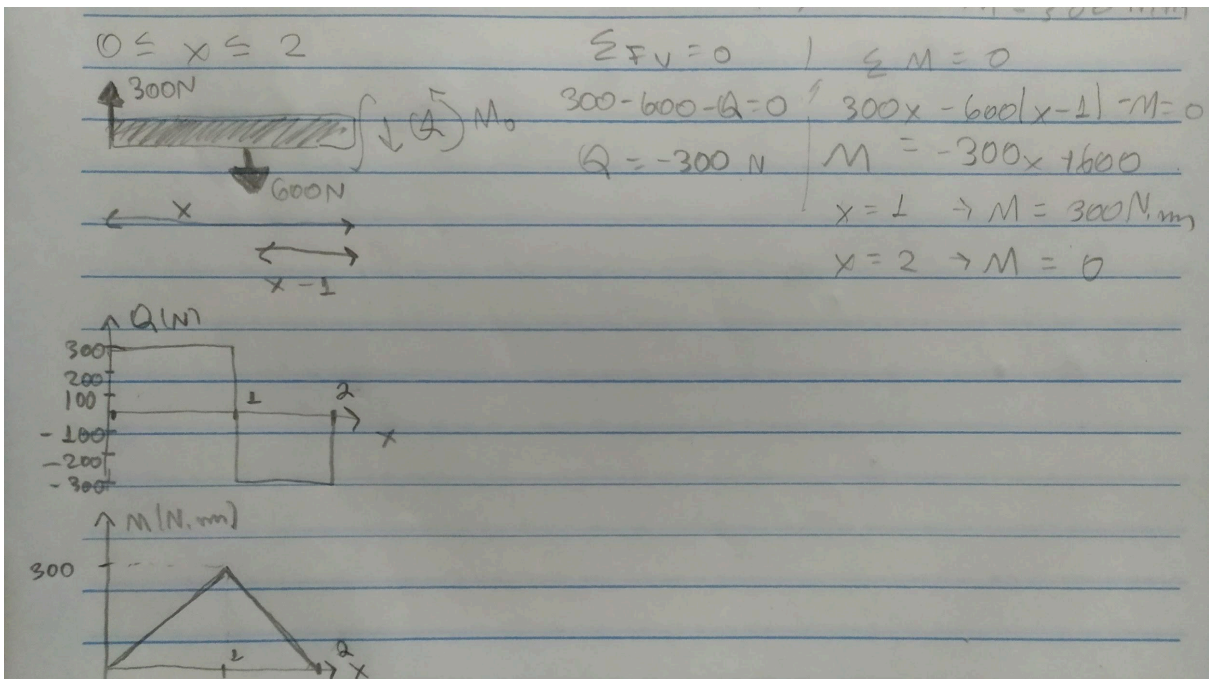 0 ≤ x ≤ 2
300N
Q
M₀
600N
x
x-1
ΣFV = 0
300-600-Q=0
Q = -300 N
ΣM = 0
300x - 600(x-1) -M=0
M = -300x +600
x = 1 → M = 300N.m
x = 2 → M = 0
Q(N)
300
200
100
1
2
x
-100
-200
-300
M(N.m)
300
1
2
x